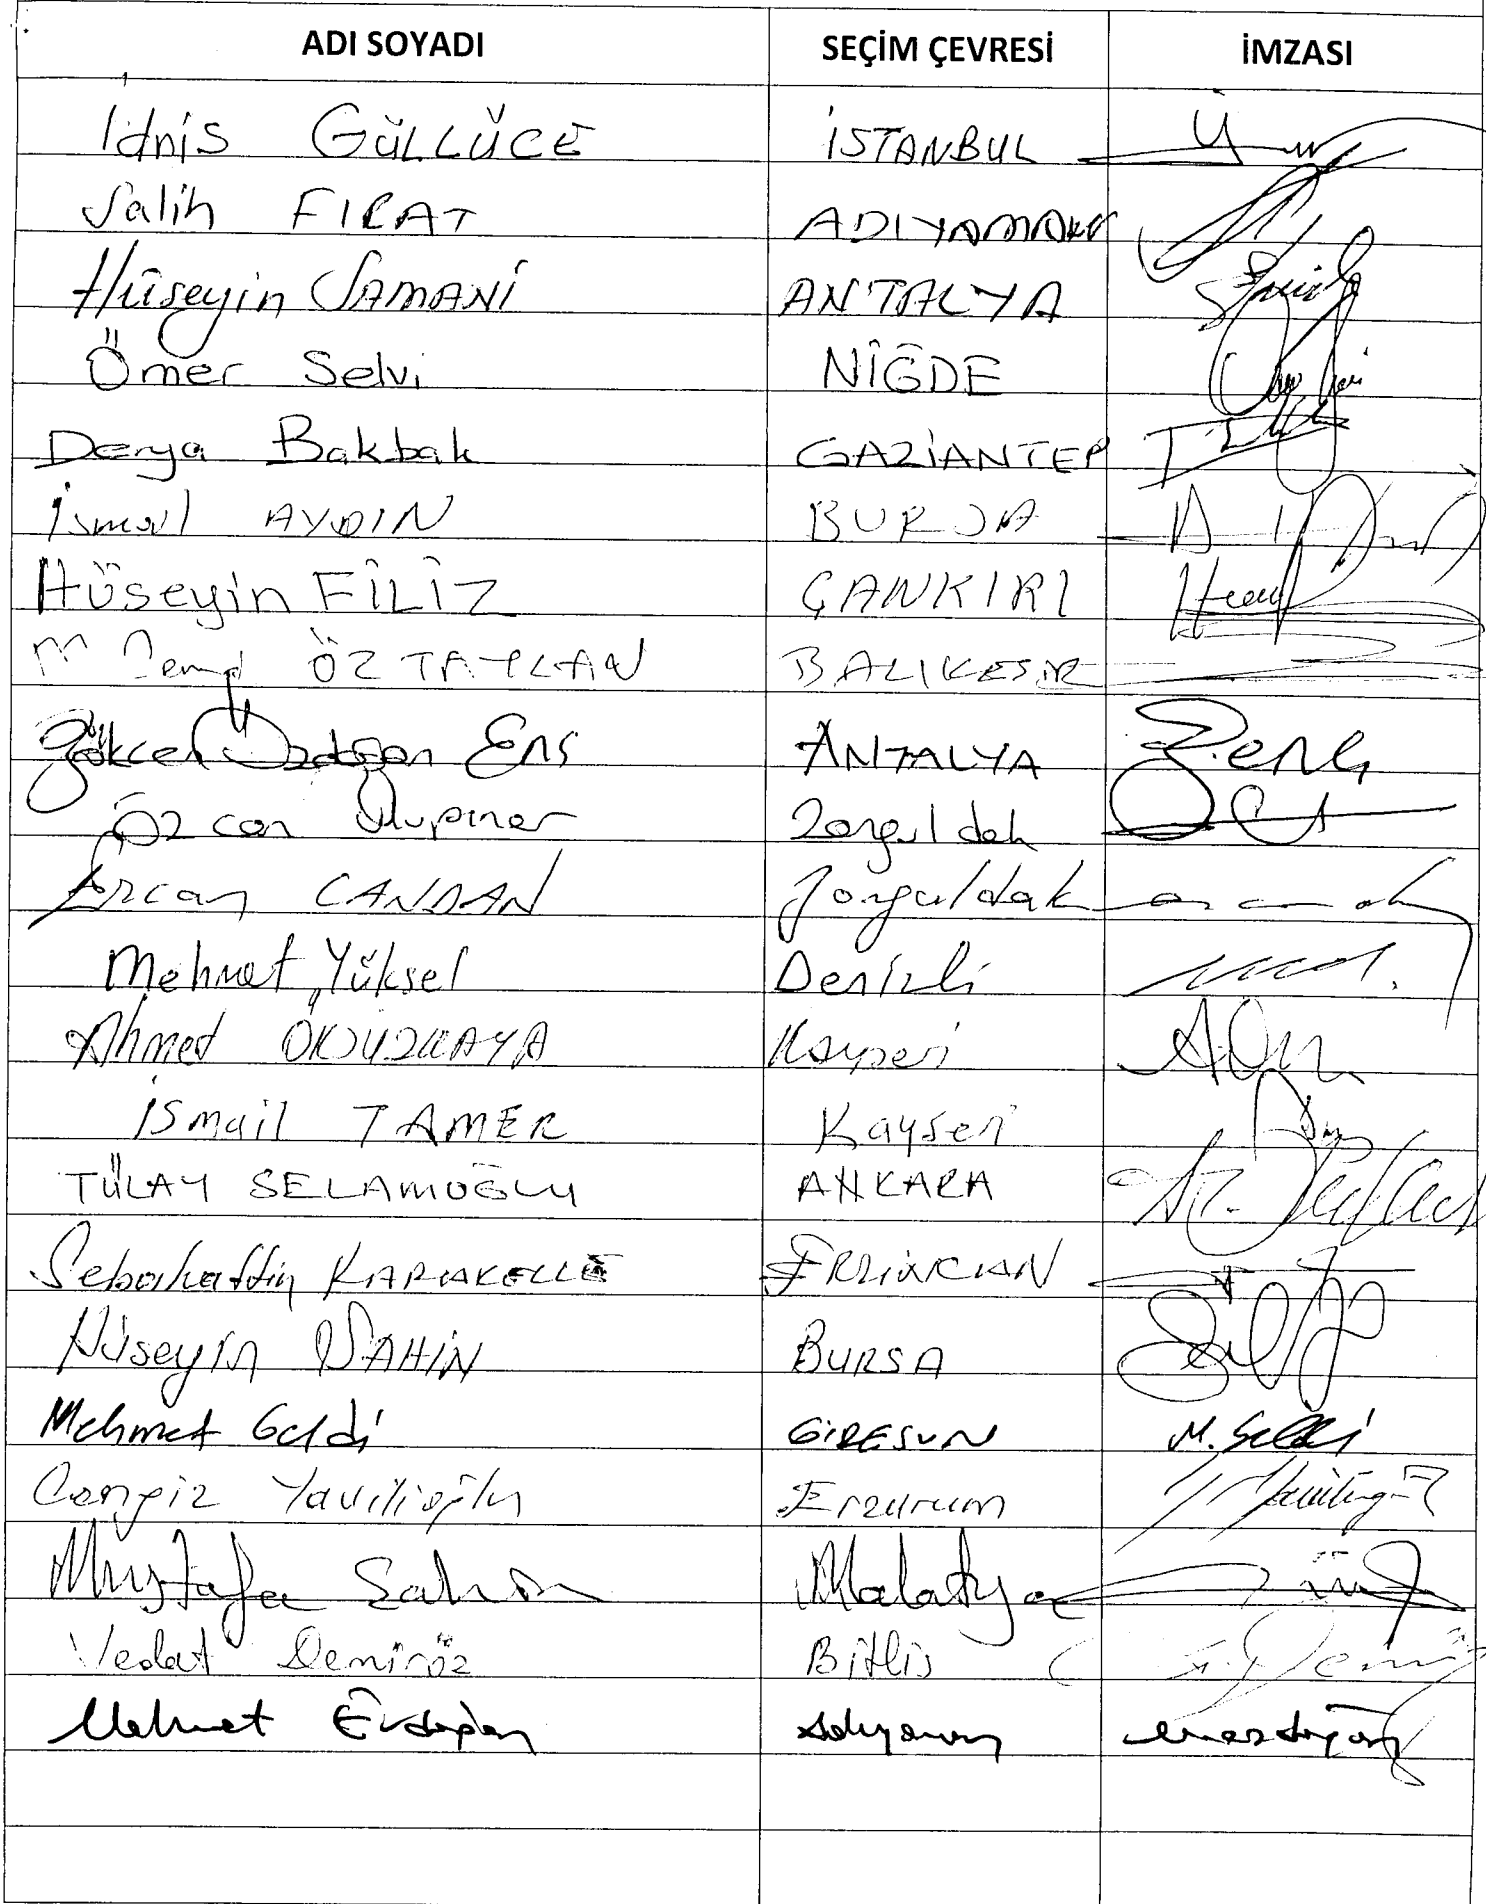 ADI SOYADI SEÇİM ÇEVRESİ İMZASI
İdris GÜLLÜCE İSTANBUL
Salih FIRAT ADIYAMAN
Hüseyin SAMANİ ANTALYA
Ömer Selvi NİĞDE
Derya Bakbak GAZİANTEP
İsmail AYDIN BURSA
Hüseyin FİLİZ ÇANKIRI
M Cemal ÖZTAYLAN BALIKESİR
Gökcen Özdoğan Enç ANTALYA
Özcan Ulupınar Zonguldak
Ercan CANDAN Zonguldak
Mehmet Yüksel Denizli
Ahmet ÖKSÜZKAYA Kayseri
İsmail TAMER Kayseri
TÜLAY SELAMOĞLU ANKARA
Sebahattin KARAKELLE ERZİNCAN
Hüseyin ŞAHİN BURSA
Mehmet Geldi GİRESUN M. Geldi
Cengiz Yavilioğlu Erzurum
Mustafa Şahin Malatya
Vedat Demiröz Bitlis
Mehmet Erdoğan Adıyaman